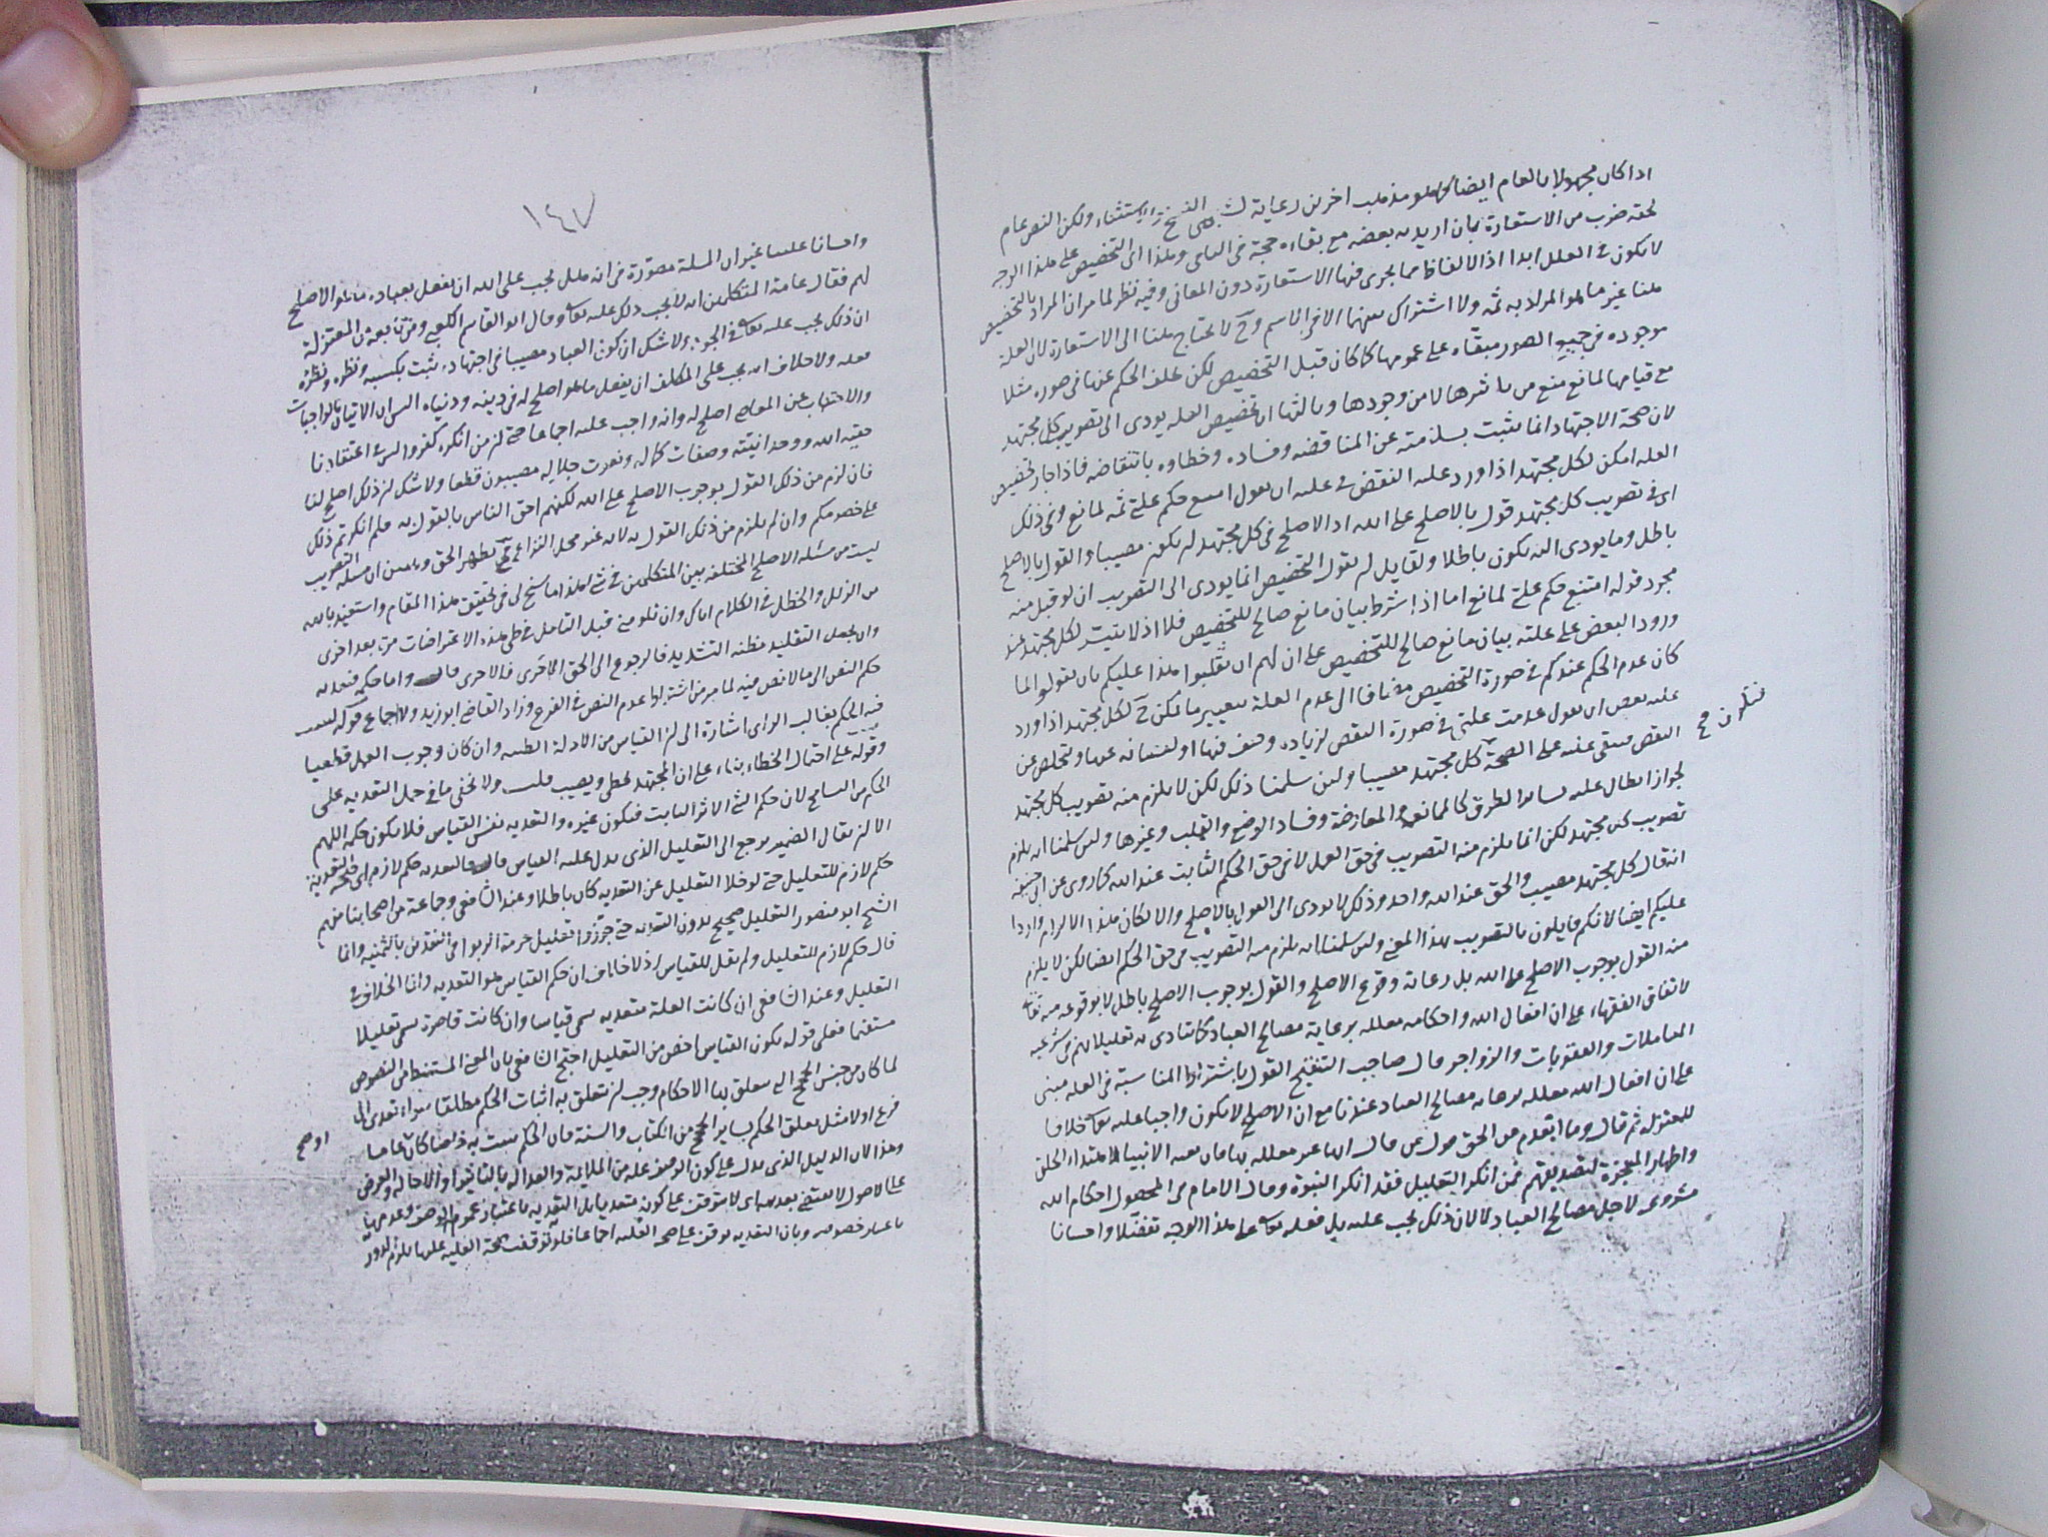 اذا كان مجهولا بالعام ايضا كما هو مذهب اخرين رعاية لشبهى النسخ والاستثناء ولكن النص عام
لحقه ضرب من الاستعارة بان اريد به بعضه مع بقاءه حجة فى الباقى وهذا اى التخصيص على هذا الوجه
لا يكون فى العلل ابدا اذ الالفاظ مما يجرى فيها الاستعارة دون المعانى وفيه نظر لما مر ان المراد بالتخصيص
هنا غير ما هو المراد به ثمه ولا اشتراك بينهما الا فى الاسم وح لا يحتاج هنا الى الاستعارة لان العلة
موجوده فى جميع الصور مبقاه على عمومها كما كان قبل التخصيص لكن تخلف الحكم عنها فى صوره مثلا
مع قيامها لمانع منع من تاثيرها لا من وجودها وثالثها ان تخصيص العله يودى الى تصويب كل مجتهد
لان صحة الاجتهاد انما يثبت بسلامته عن المناقضه وفساده وخطاؤه بانتقاضه فاذا جاز تخصيص
العله امكن لكل مجتهد اذا ورد عليه النقض فى علته ان يقول امتنع حكم علتى ثمه لمانع وفى ذلك
اى فى تصويب كل مجتهد قول بالاصلح على الله اذ الاصلح فى كل مجتهد ان يكون مصيبا والقول بالاصلح
باطل وما يودى اليه يكون باطلا ولقايل ان يقول التخصيص انما يودى الى التصويب ان لو قبل منه
مجرد قوله امتنع حكم علتى لمانع اما اذا اشترط بيان مانع صالح للتخصيص فلا اذ لا يتيسر لكل مجتهد عند
ورود البعض على علته بيان مانع صالح للتخصيص على ان لهم ان يقلبوا هذا عليكم بان يقولوا لما
كان عدم الحكم عندكم فى صورة التخصيص مضافا الى عدم العلة بتغيير ما يمكن ح لكل مجتهد اذا ورد
عليه بعض ان يقول عدمت علتى فى صورة النقض لزياده وصف فيها او لنقصانه عنها وتخلص عن
النقض فيبقى علته على الصحة كل مجتهد مصيبا ولئن سلمنا ذلك لكن لا يلزم منه تصويب كل مجتهد
فيكون صح
لجواز ابطال علته بساير الطرق كالممانعة والمعارضة وفساد الوضع والقلب وغيرها ولئن سلمنا انه يلزم
تصويب كل مجتهد لكن انما يلزم منه التصويب فى حق العمل لا فى حق الحكم الثابت عند الله كما روى عن ابى حنيفه
انه قال كل مجتهد مصيب والحق عند الله واحد وذلك لا يودى الى القول بالاصلح والا لكان هذا الالزام واردا
عليكم ايضا لانكم قايلون بالتصويب بهذا المعنى ولئن سلمنا انه يلزم منه التصويب فى حق الحكم ايضا لكن لا يلزم
منه القول بوجوب الاصلح على الله بل رعاية وقوع الاصلح والقول بوجوب الاصلح باطل لا بوقوعه منه تعالى
لاتفاق الفقهاء على ان افعال الله واحكامه معلله برعاية مصالح العباد كما ينادى به تعليلاتهم فى شرعية
المعاملات والعقوبات والزواجر قال صاحب التنقيح القول باشتراط المناسبة فى العله مبنى
على ان افعال الله معلله برعاية مصالح العباد عندنا مع ان الاصلح لا يكون واجبا عليه تعالى خلافا
للمعتزله ثم قال وما ابعد من الحق قول من قال انها غير معلله بها فان بعثه الانبيا لاهتداء الخلق
واظهار المعجزة لتصديقهم فمن انكر التعليل فقد انكر النبوة وقال الامام فى المحصول احكام الله
مشروعه لاجل مصالح العباد لا لان ذلك يجب عليه بل فعله تعالى على هذا الوجه تفضلا واحسانا
١٤٧
واحسانا علينا غير ان المسلة مصورة فى انه هل يجب على الله ان يفعل بعباده ما هو الاصلح
لهم فقال عامة المتكلمين انه لا يجب ذلك عليه تعالى وقال ابو القاسم الكعبى ومن تابعه من المعتزلة
ان ذلك يجب عليه تعالى ولا شك ان كون العباد مصيبا فى اجتهاده يثبت بكسبه ونظره ونظره
فعله ولا خلاف انه يجب على المكلف ان يفعل ما هو اصلح له فى دينه ودنياه اليس ان الاتيان بالواجبات
والاجتناب عن المعاصى اصلح له وانه واجب عليه اجماعا حتى ان من انكره كفر واليس فى اعتقادنا
حقية الله ووحدانيته وصفات كماله ونعوت جلاله مصيبون قطعا ولا شك ان ذلك اصلح لنا
فان لزم من ذلك القول بوجوب الاصلح على الله لكنهم احق الناس بالقول به فلم انكرتم ذلك
على خصومكم وان لم يلزم من ذلك القول به لانه غير محل النزاع فح يظهر الحق وتبين ان مسلة التصويب
ليست من مسئلة الاصلح المختلفه بين المتكلمين فى شئ هذا ما سنح لى فى تحقيق هذا المقام واستعيذ بالله
من الزلل والخطل فى الكلام اياك وان تلومنى قبل التامل فى طى هذه الاعتراضات مرة بعد اخرى
وان يجعل التقليد مظنه التشديد فالرجوع الى الحق الاحرى فالاحرى قال واما حكمه فتعديه
حكم النص الى ما لا نص فيه لما مر من اشتراط عدم النص فى الفرع وزاد القاضى ابو زيد ولا اجماع قوله ليثبت
فيه الحكم بغالب الراى اشارة الى ان القياس من الادلة الظنيه وان كان وجوب العمل قطعيا
وقوله على احتمال الخطاء بناء على ان المجتهد يخطى ويصيب قلت ولا يخفى ما فى جعل التعديه على
الحكم من التسامح لان حكم الشئ الاثر الثابت فيكون غيره والتعديه نفس القياس فلا يكون حكمه اللهم
الا ان يقال الضمير يرجع الى التعليل الذى يدل عليه القياس قال فالتعديه حكم لازم اى فالتعدية
حكم لازم للتعليل حتى لو خلا التعليل عن التعديه كان باطلا وعند الشافعى وجماعة من اصحابنا منهم
الشيخ ابو منصور التعليل صحيح بدون التعديه حتى جوزوا تعليل حرمة الربوا فى النقدين بالثمنيه وانما
قال حكم لازم للتعليل ولم يقل للقياس اذ لا خلاف ان حكم القياس هو التعديه وانما الخلاف فى
التعليل وعند الشافعى ان كانت العلة متعديه سمى قياسا وان كانت قاصرة سمى تعليلا
مستقيما فعلى قوله يكون القياس اخص من التعليل احتج الشافعى بان المعنى المستنبط من النصوص
لما كان من جنس الحجج التى يتعلق بها الاحكام وجب ان يتعلق به اثبات الحكم مطلقا سواء تعدى الى
فرع او لا مثل تعلق الحكم بساير الحجج من الكتاب والسنة فان الحكم يثبت به خاصا كان عاما
او صح
وهذا لان الدليل الذى يدل على كون الوصف عله من الملايمة والعداله بالتاثير او الاخاله والعرض
على الاصول لا يقتضى تعديه اى لا يتوقف على كون متعديا بل التعديه باعتبار عموم الوصف وعدمها
باعتبار خصوصه وبان التعديه يوقف على صحه العليه اجماعا فلو توقفت صحة العليه عليها يلزم الدور